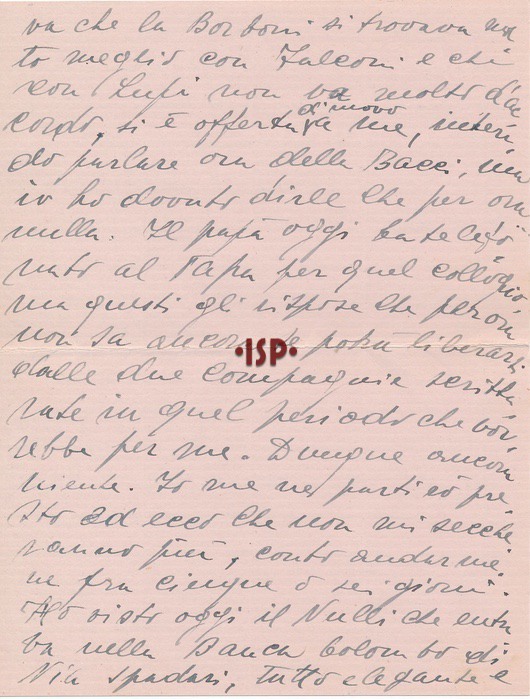 va che la Borboni si trovava mol
to meglio con Falconi e chi
con Lupi non va molto d'ac
cordo, si è offerta di nuovo a me, inten
do parlare ora della Bacci, ma
io ho dovuto dirle che per ora
nulla. Il papà oggi ha telefo
nato al Papa per quel colloquio,
ma questi gli rispose che per ora
non sa ancora se potrà liberarsi
dalle due compagnie scrittu
rate in quel periodo che vor
rebbe per me. Dunque ancora
niente. Io me ne partirò pre
sto ed ecco che non mi secche
ranno più, conto andarme
ne fra cinque o sei giorni.
Ho visto oggi il Nulli che entra
va nella Banca Colombo di
Via Spadari, tutto elegante e
•ISP•